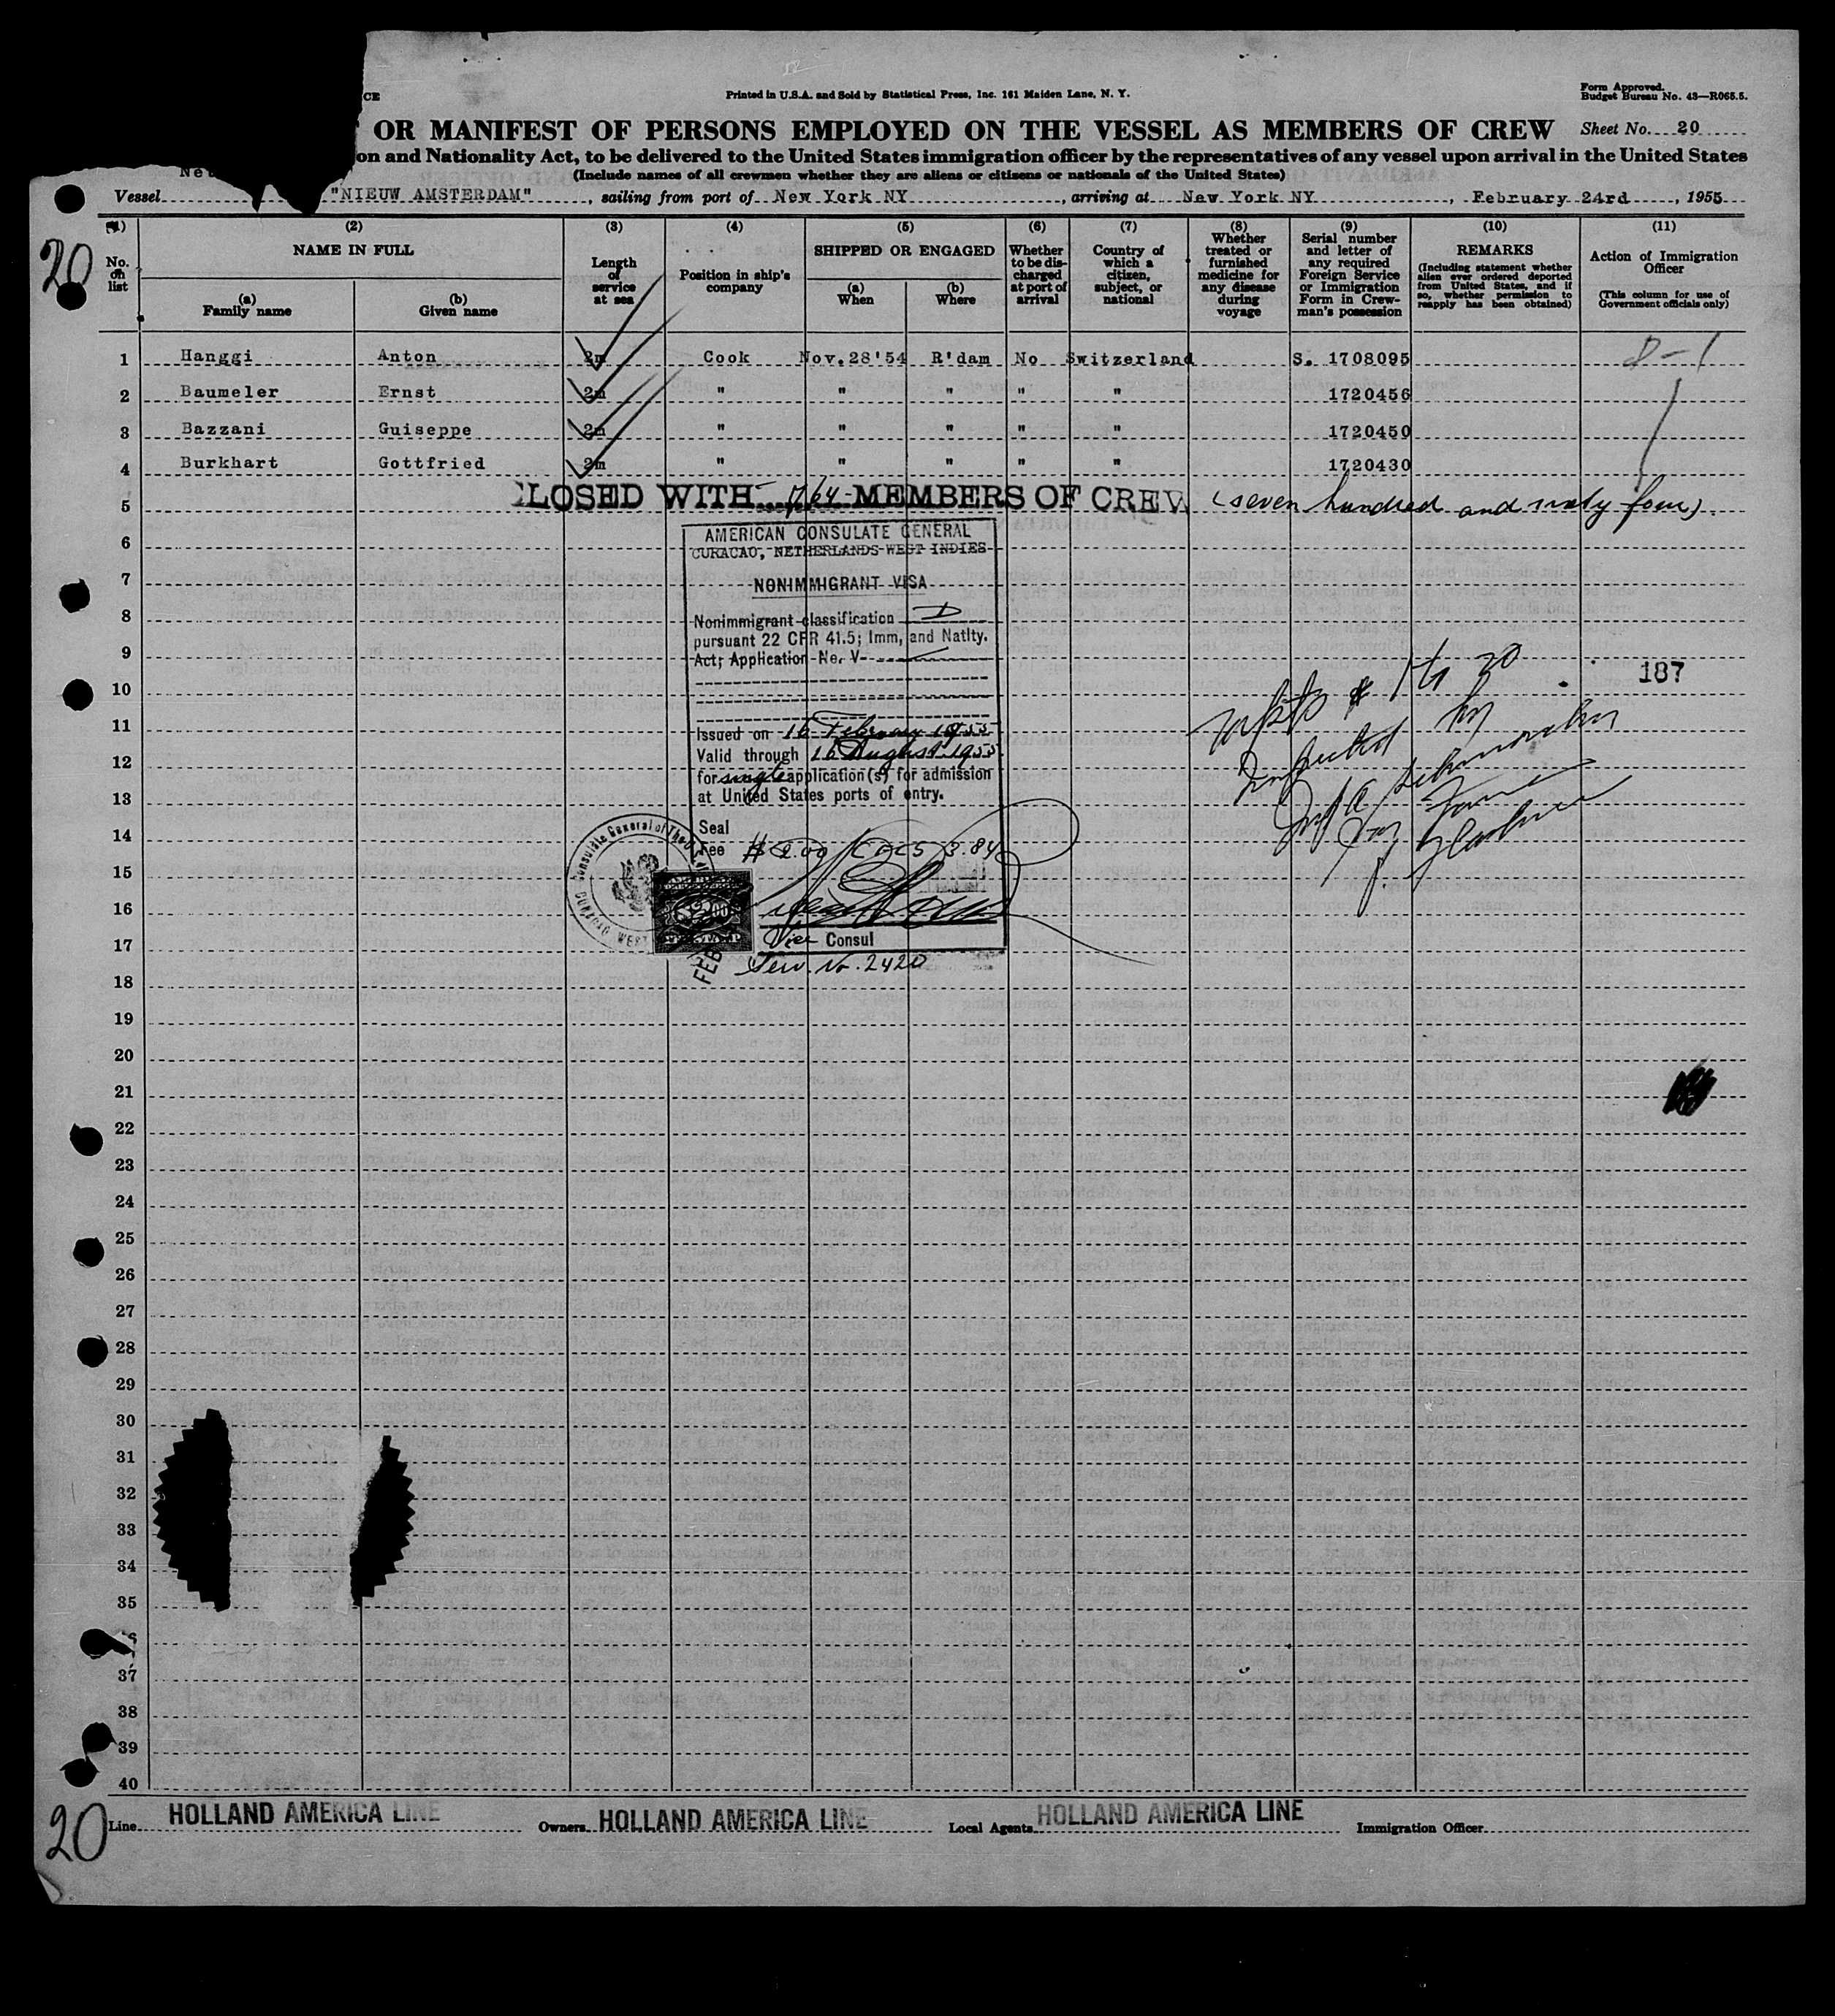 CE
Printed in U.S.A. and Sold by Statistical Press, Inc. 161 Maiden Lane, N. Y.
Form Approved.
Budget Bureau No. 43—R065.5.
OR MANIFEST OF PERSONS EMPLOYED ON THE VESSEL AS MEMBERS OF CREW
Sheet No. 20
on and Nationality Act, to be delivered to the United States immigration officer by the representatives of any vessel upon arrival in the United States
(Include names of all crewmen whether they are aliens or citizens or nationals of the United States)
Vessel "NIEUW AMSTERDAM", sailing from port of New York NY, arriving at New York NY, February 24rd, 1955
20
(1) (2) (3) (4) (5) (6) (7) (8) (9) (10) (11)
No. on list
NAME IN FULL
(a) Family name
(b) Given name
Length of service at sea
Position in ship's company
SHIPPED OR ENGAGED
(a) When
(b) Where
Whether to be discharged at port of arrival
Country of which a citizen, subject, or national
Whether treated or furnished medicine for any disease during voyage
Serial number and letter of any required Foreign Service or Immigration Form in Crewman's possession
REMARKS
(Including statement whether alien ever ordered deported from United States, and if so, whether permission to reapply has been obtained)
Action of Immigration Officer
(This column for use of Government officials only)
1 Hanggi Anton 2m Cook Nov.28'54 R'dam No Switzerland S. 1708095 D-1
2 Baumeler Ernst 2m " " " " " 1720456
3 Bazzani Guiseppe 2m " " " " " 1720450
4 Burkhart Gottfried 2m " " " " " 1720430
CLOSED WITH 764 MEMBERS OF CREW (seven hundred and sixty four).
5
AMERICAN CONSULATE GENERAL
6
CURACAO, NETHERLANDS WEST INDIES
7
NONIMMIGRANT VISA
8
Nonimmigrant classification D
pursuant 22 CFR 41.5; Imm. and Natlty.
9
Act; Application No. V-
187
10
11
Issued on 16 February 1955
Valid through 16 August 1955
12
for single application(s) for admission
at United States ports of entry.
13
14
Seal
Fee $2.00
15
16
17
Vice Consul
FEB
Serv. No. 2420
18
19
20
21
22
23
24
25
26
27
28
29
30
31
32
33
34
35
37
38
39
40
20
Line HOLLAND AMERICA LINE Owners HOLLAND AMERICA LINE Local Agents HOLLAND AMERICA LINE Immigration Officer